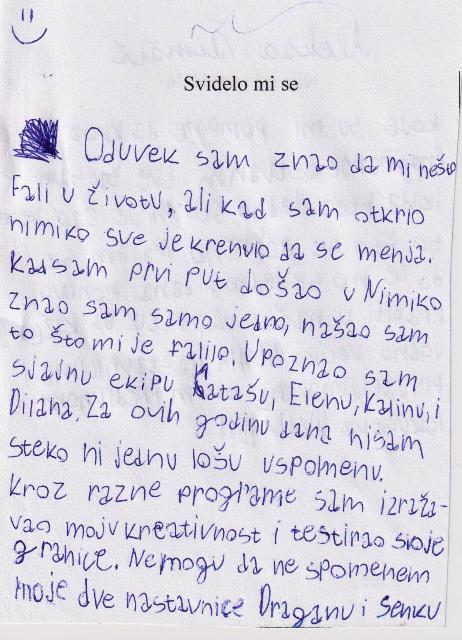 Svidelo mi se
Oduvek sam znao da mi nešto
Fali u životu, ali kad sam otkrio
nimiko sve je krenulo da se menja.
Kad sam prvi put došao u Nimiko
znao sam samo jedno, našao sam
to što mi je falilo. Upoznao sam
sjajnu ekipu Natašu, Elenu, Kalinu, i
Dilana. Za ovih godinu dana nisam
steko ni jednu lošu uspomenu.
Kroz razne programe sam izraža-
vao moju kreativnost i testirao svoje
granice. Nemogu da ne spomenem
moje dve nastavnice Draganu i Senku